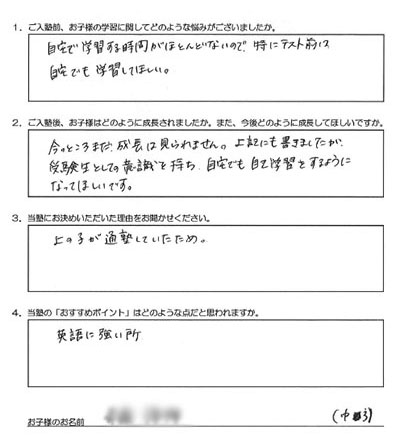 1. ご入塾前、お子様の学習に関してどのような悩みがございましたか。
自宅で学習する時間がほとんどないので、特にテスト前は
自宅でも学習してほしい。
2. ご入塾後、お子様はどのように成長されましたか。また、今後どのように成長してほしいですか。
今のところまだ成長は見られません。上記にも書きましたが、
受験生としての意識を持ち、自宅でも自て学習をするように
なってほしいです。
3. 当塾にお決めいただいた理由をお聞かせください。
上の子が通塾していたため。
4. 当塾の「おすすめポイント」はどのような点だと思われますか。
英語に強い所
お子様のお名前
(中3)